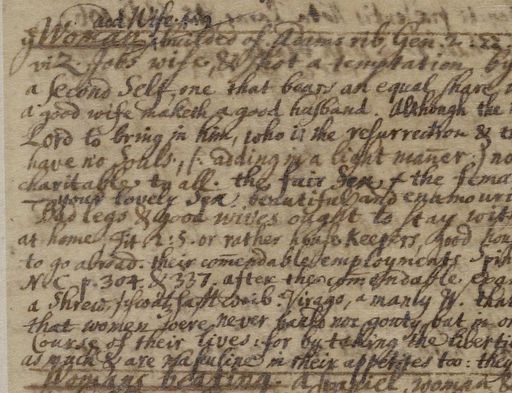 and Wife.
Woman, builded of Adams rib, Gen. 2. 22.
viz. Jobs wife, & not a temptation by
a second self, one that bears an equal share
a good wife maketh a good husband. Although the
Lord to bring in him, who is the resurrection &
have no souls, (: adding in a light mañer :) no
charitable to all. the fair Sex, the fema
your lovely Sex, beautiful and enamouri
Bad legs & good wives ought to stay
at home, Tit 2: 5. or rather house keepers, good
to go abroad. their comendable employments
N. C. p. 304. & 337. after the comendable
a Shrew, Virago, a manly W. that
that women were never bald nor gouty, but in
Course of their lives: for by taking the liberti
as much & are masculine in their appetites too: they
Womans beading. a woman